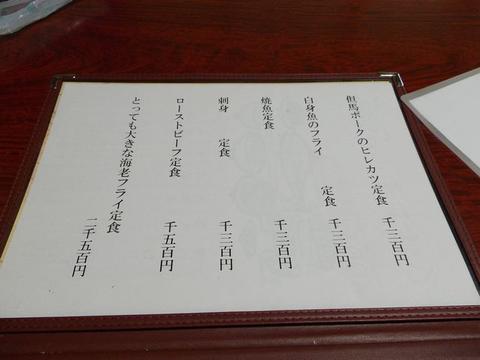 但馬ポークのヒレカツ定食 千三百円
白身魚のフライ 定食 千三百円
焼魚定食 千三百円
刺身 定食 千三百円
ローストビーフ定食 千五百円
とっても大きな海老フライ定食 二千五百円